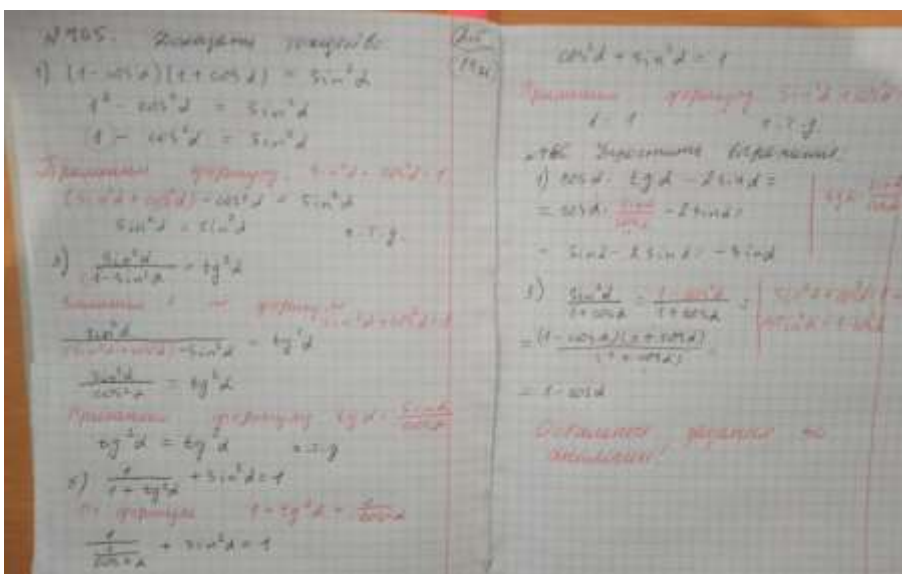 №465. Доказать тождество
1) (1-cosα)(1+cosα) = sin²α
1² - cos²α = sin²α
1 - cos²α = sin²α
Применим формулу
(sin²α+cos²α)-cos²α = sin²α
sin²α = sin²α ч.т.д.
3) sin²α / 1-sin²α = tg²α
формулу sin²α+cos²α=1
sin²α / (sin²α+cos²α)-sin²α = tg²α
sin²α / cos²α = tg²α
Применим формулу tgα = sinα / cosα
tg²α = tg²α ч.т.д
5) 1 / 1+tg²α + sin²α=1
По формуле 1+tg²α = 1 / cos²α
1 / 1 / cos²α + sin²α=1
cos²α + sin²α = 1
Применим формулу sin²α+cos²α
1 = 1 ч.т.д.
№466 Упростить выражение:
1) cosα · tgα - 2sinα =
tgα = sinα / cosα
= cosα · sinα / cosα - 2sinα =
= sinα - 2sinα = -sinα
3) sin²α / 1+cosα = 1-cos²α / 1+cosα =
sin²α+cos²α=1
sin²α=1-cos²α
= (1-cosα)(1+cosα) / (1+cosα) =
= 1-cosα
Остальные задания по
аналогии!